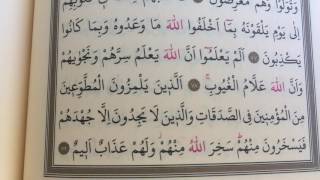 وَتَوَلَّوْا وَهُمْ مُعْرِضُونَ
اِلٰى يَوْمِ يَلْقَوْنَهُ بِمَٓا اَخْلَفُوا اللّٰهَ مَا وَعَدُوهُ وَبِمَا كَانُوا
يَكْذِبُونَ ﴿٧٧﴾ اَلَمْ يَعْلَمُٓوا اَنَّ اللّٰهَ يَعْلَمُ سِرَّهُمْ وَنَجْوٰيهُمْ
وَاَنَّ اللّٰهَ عَلَّامُ الْغُيُوبِ ﴿٧٨﴾ اَلَّذِينَ يَلْمِزُونَ الْمُطَّوِّعِينَ
مِنَ الْمُؤْمِنِينَ فِى الصَّدَقَاتِ وَالَّذِينَ لَا يَجِدُونَ اِلَّا جُهْدَهُمْ
فَيَسْخَرُونَ مِنْهُمْ سَخِرَ اللّٰهُ مِنْهُمْ وَلَهُمْ عَذَابٌ اَلِيمٌ ﴿٧٩﴾